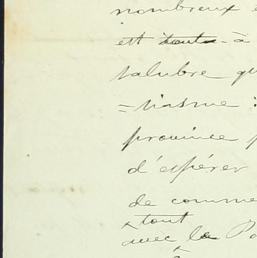 nombreux e
est toute à
salubre qu
=tiasme :
province p
d'espérer
de comme
tout
avec le Pa